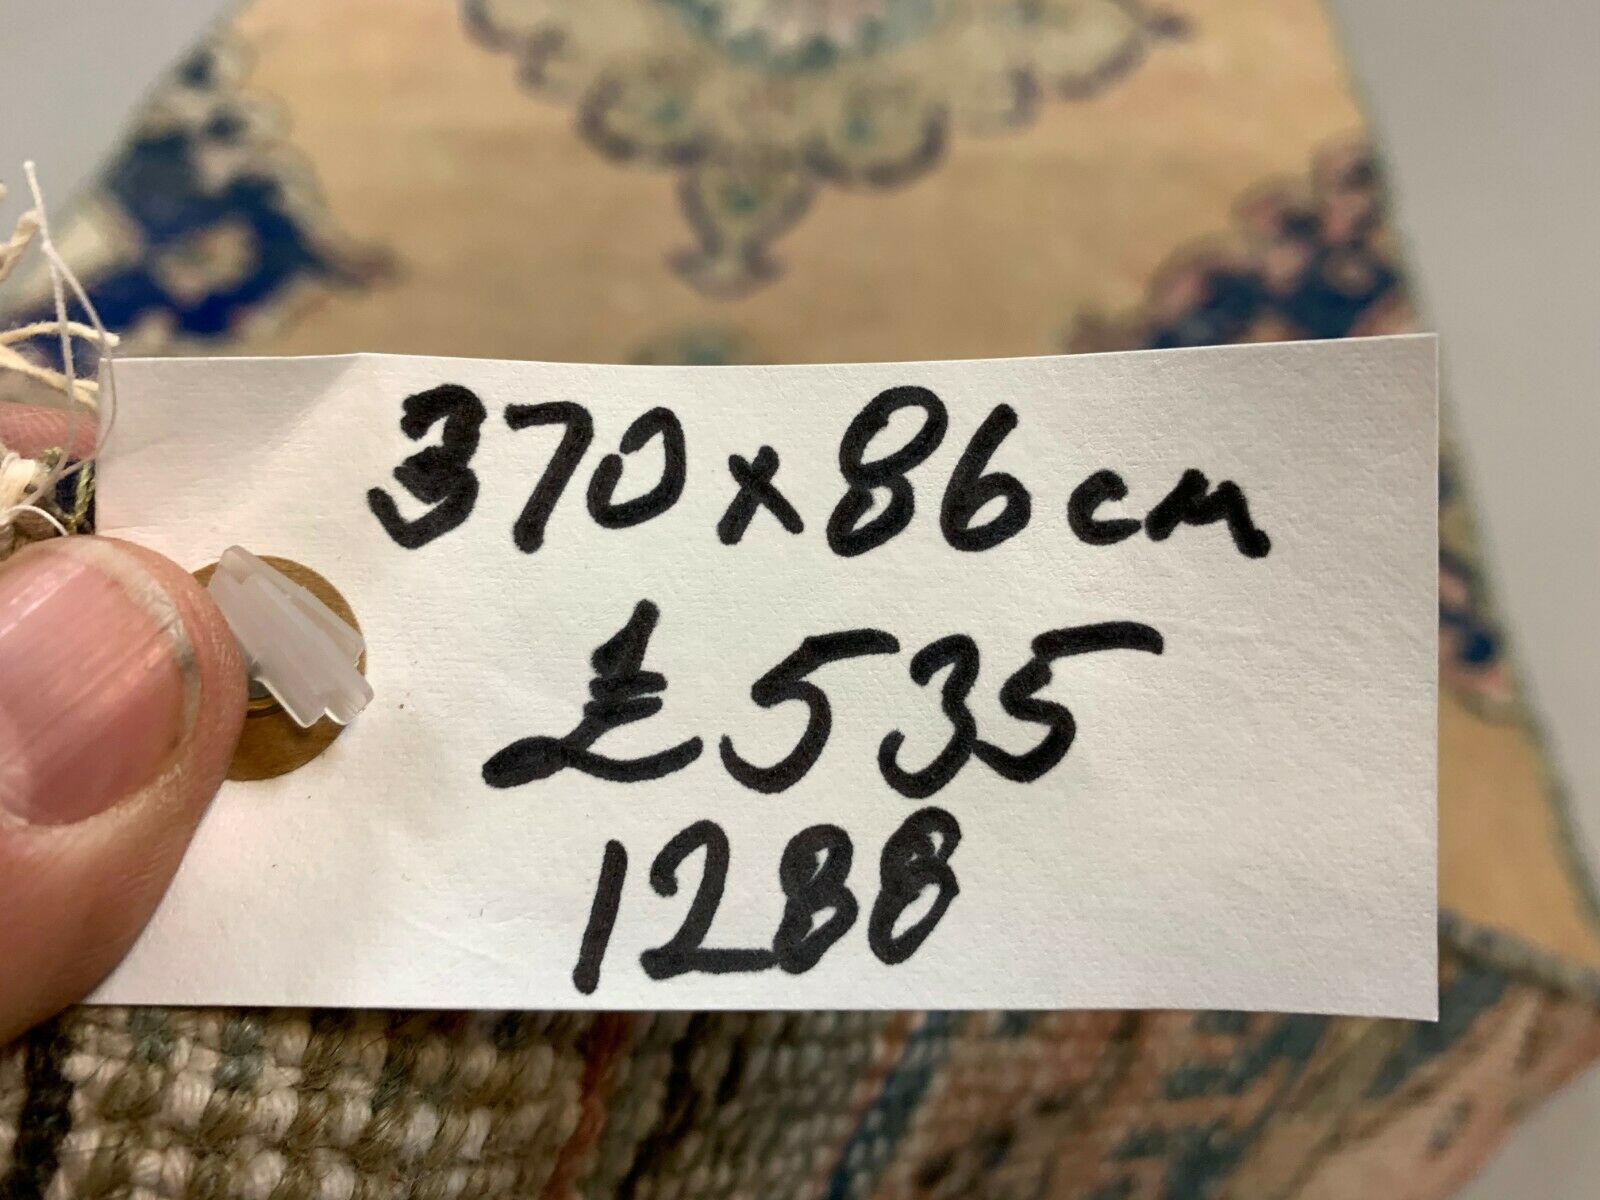 370x86cm
£535
1288